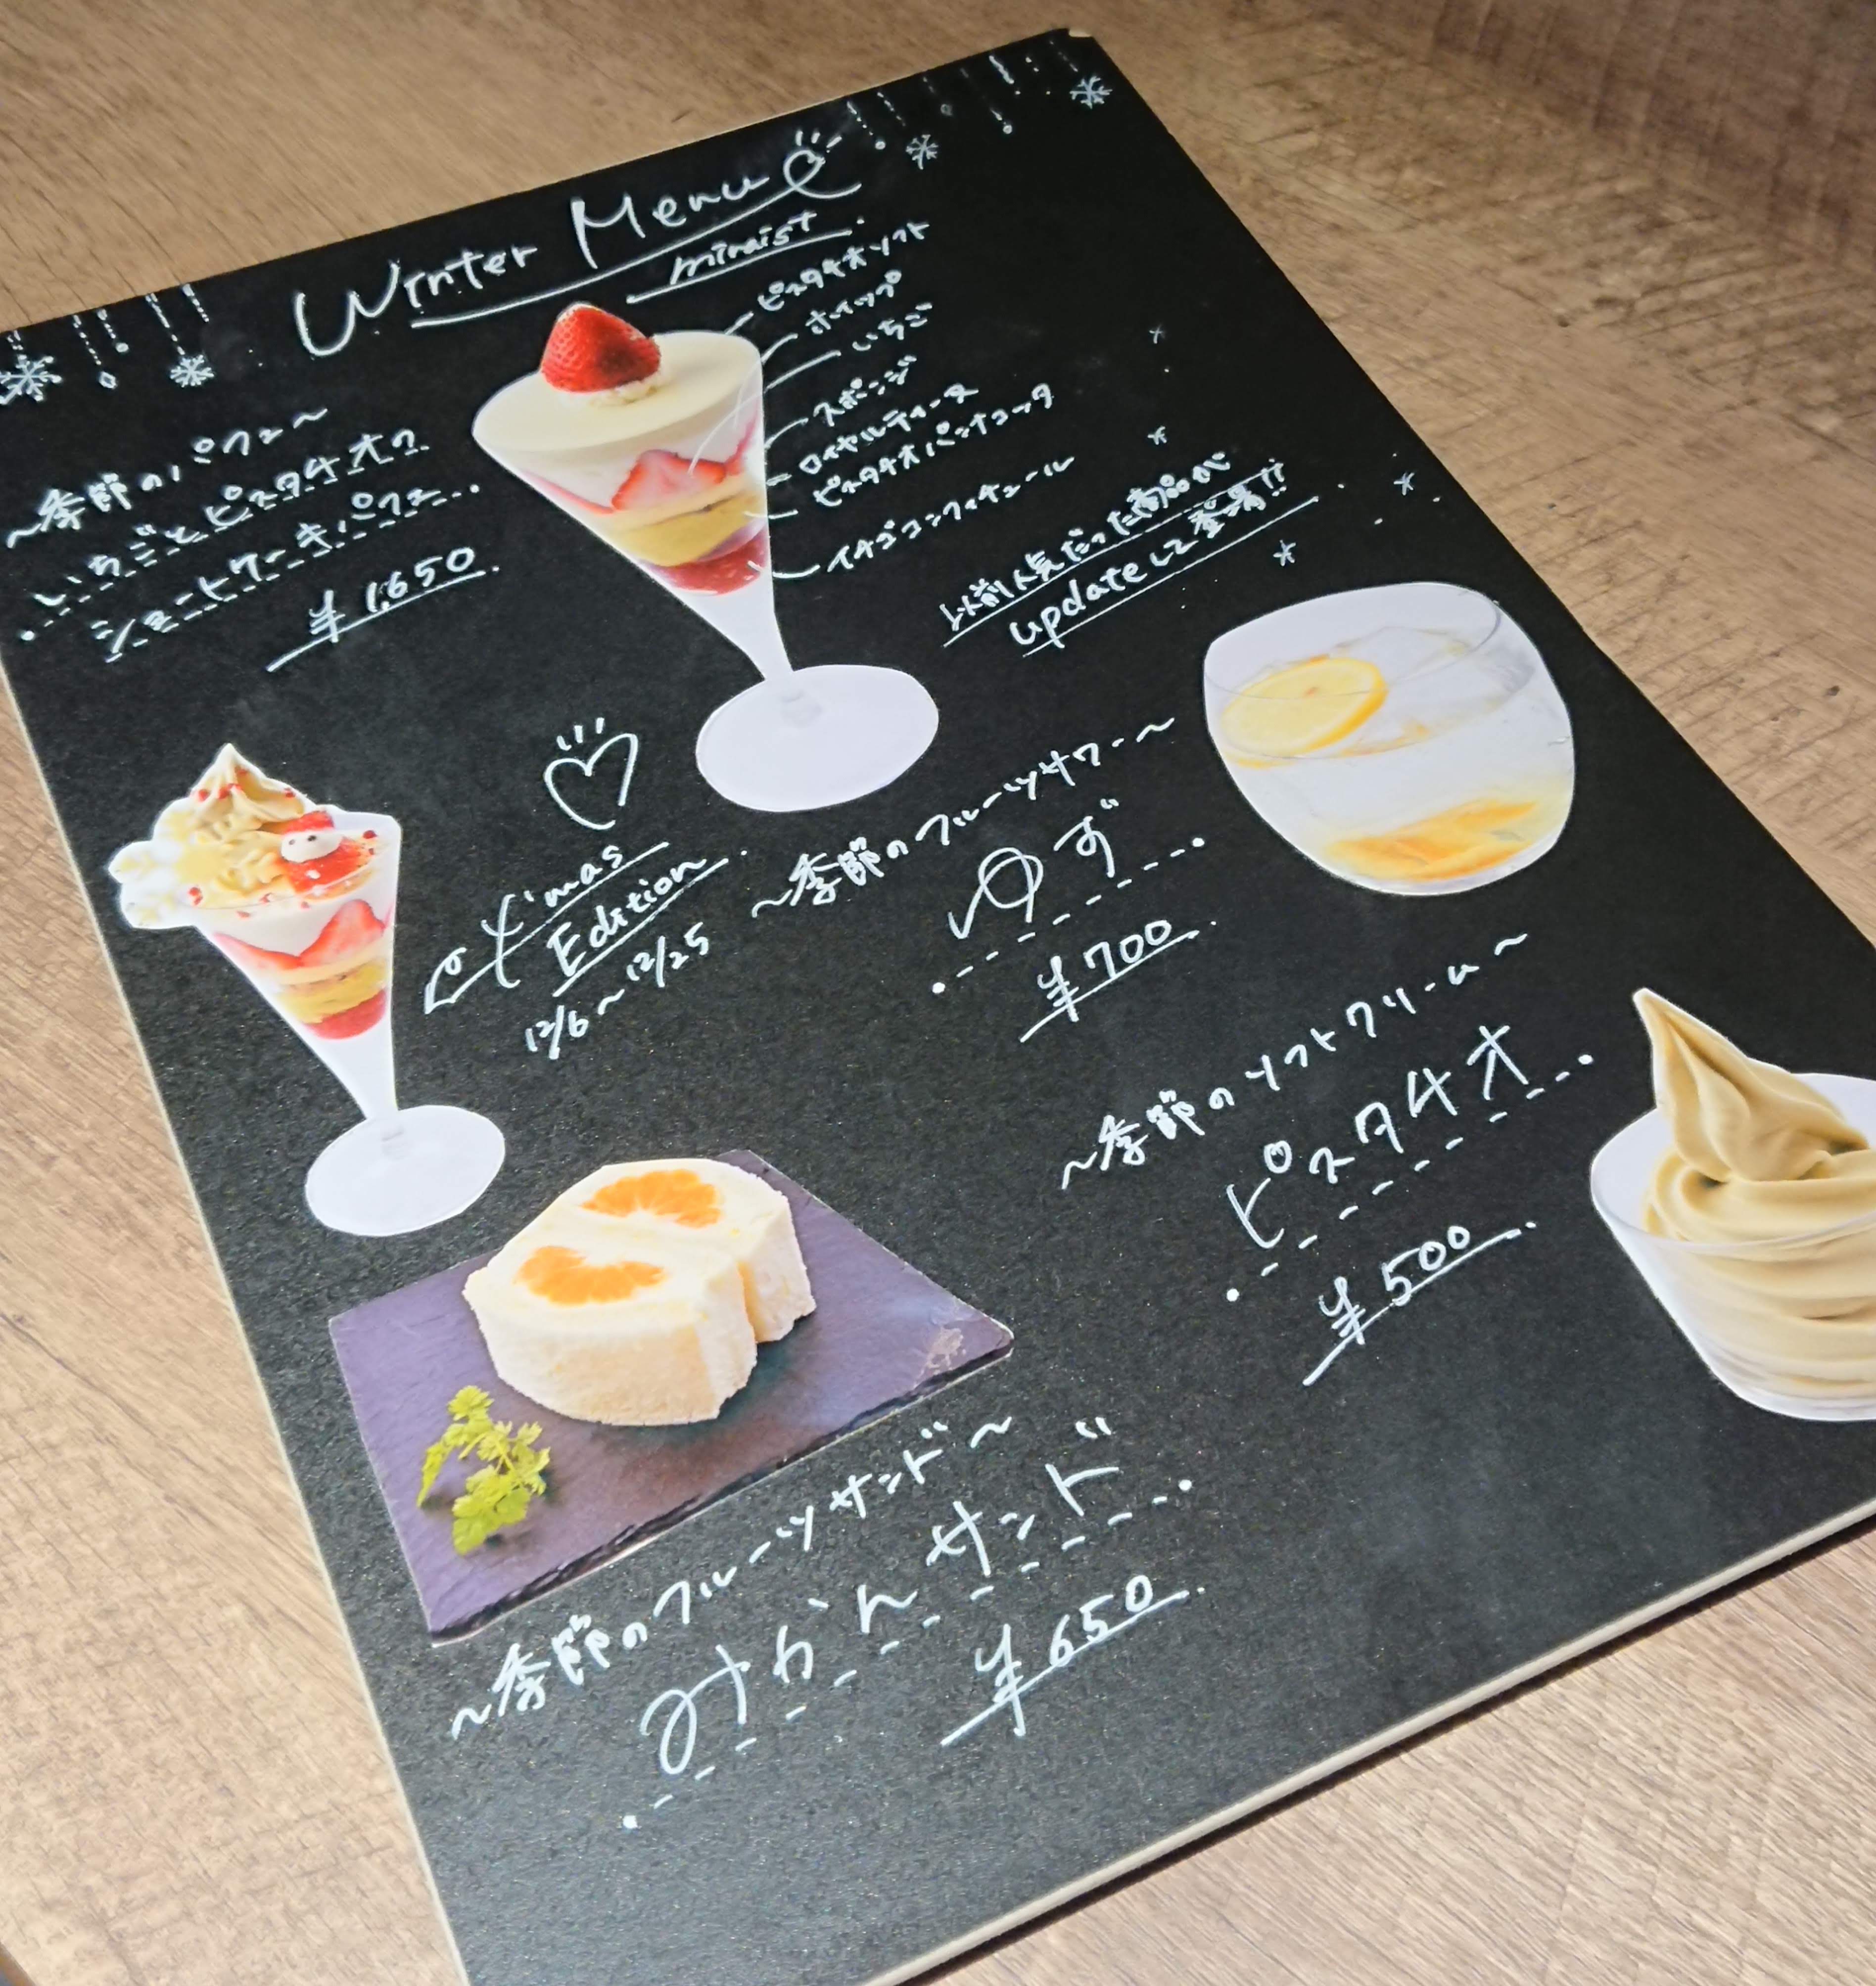 Winter Menu
miraist
ピスタチオソフト
ホイップ
いちご
スポンジ
ロイヤルティーヌ
ピスタチオパンナコッタ
イチゴコンフィチュール
～季節のパフェ～
いちごとピスタチオの
ショートケーキパフェ
¥1,650
以前人気だった商品が
updateして登場!!
X'mas
Edition
12/6～12/25
～季節のフルーツサワー～
ゆず
¥700
～季節のソフトクリーム～
ピスタチオ
¥500
～季節のフルーツサンド～
みかんサンド
¥650